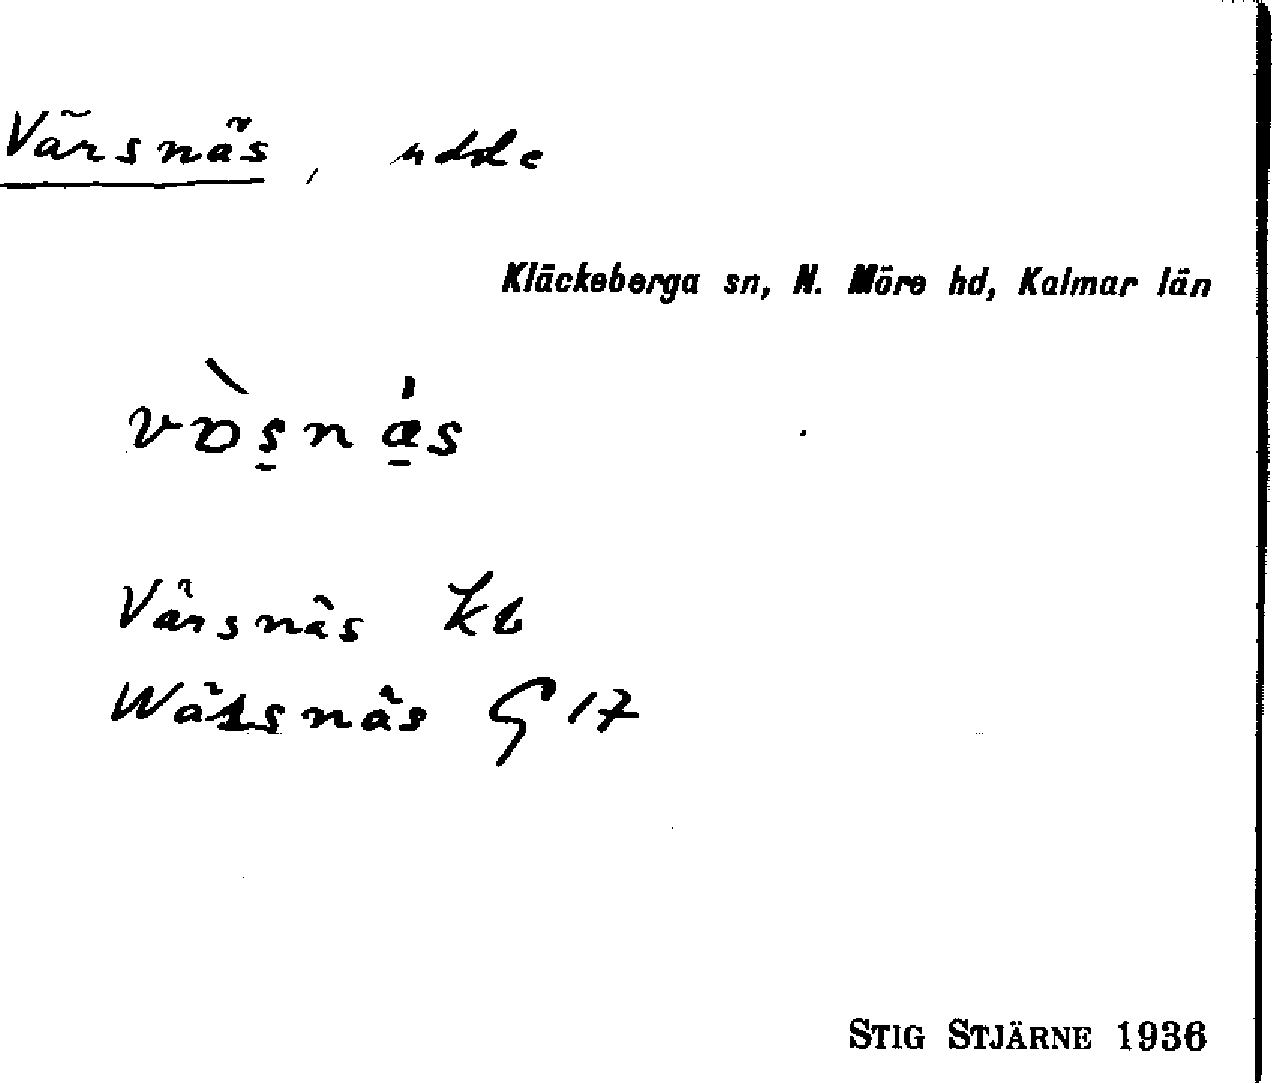 Värsnäs, udde
Kläckeberga sn, N. Möre hd, Kalmar län
Värsnäs kb
Wärsnäs G 17
STIG STJÄRNE 1936